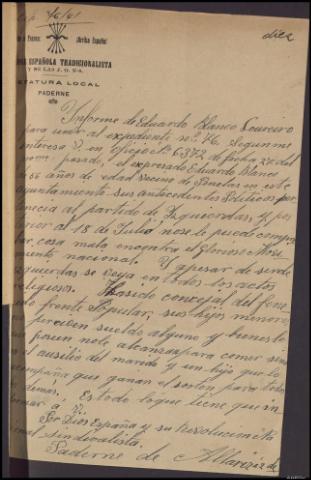 diez
¡Arriba España!
ESPAÑOLA TRADICIONALISTA
Y DE LAS J. O. N. S.
JEFATURA LOCAL
PADERNE
Informe de Eduardo Blanco Loureiro
para unir al expediente nº 76. Segun me
interesa V. en oficio nº 6372 de fecha 27 del
pasado, el expresado Eduardo Blanco
de 66 años de edad vecino de Penelas en este
ayuntamiento sus antecedentes Politicos per-
tenecia al partido de Izquierdas, y pos-
terior al 18 de Julio no se le puede compro-
bar cosa mala encontra el Glorioso Movi-
miento nacional. Y apesar de ser de
izquierdas se veya en todos los actos
religiosos. Ha sido concejal del fene-
cido frente Popular, sus hijos menores
perciben sueldo alguno y bienes lo
que poseen no le alcanzan para comer sin
el ausilio del marido y un hijo que lo
acompaña que ganan el sosten para todos
demás. Es todo lo que tiene que in-
formar a V.
Por Dios España y su Revolución Na-
cional sindicalista.
Paderne de Allariz